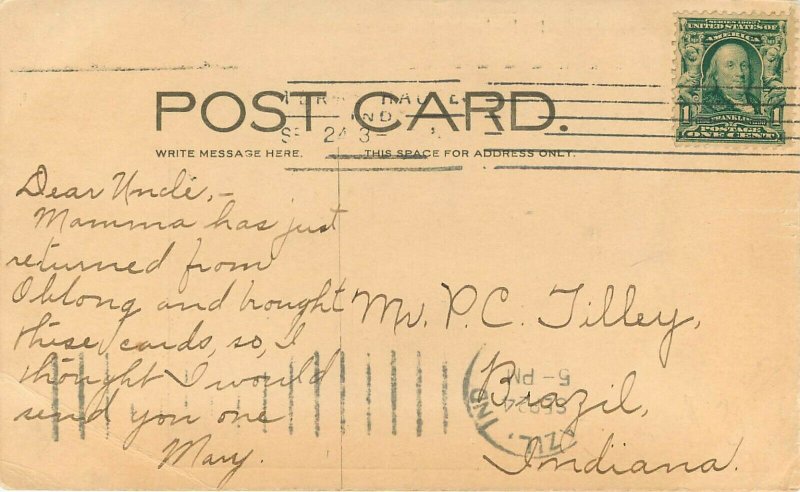 SERIES 1902
UNITED STATES OF
AMERICA
1 FRANKLIN 1
POSTAGE
ONE CENT
HAUTE
IND
24 3
POST CARD.
WRITE MESSAGE HERE. THIS SPACE FOR ADDRESS ONLY.
Dear Uncle,–
Mamma has just
returned from
Oblong and bought
these cards, so, I
thought I would
send you one
Mary.
Mr. P. C. Tilley,
Brazil,
Indiana.
5-PM
SEP 24
IND.